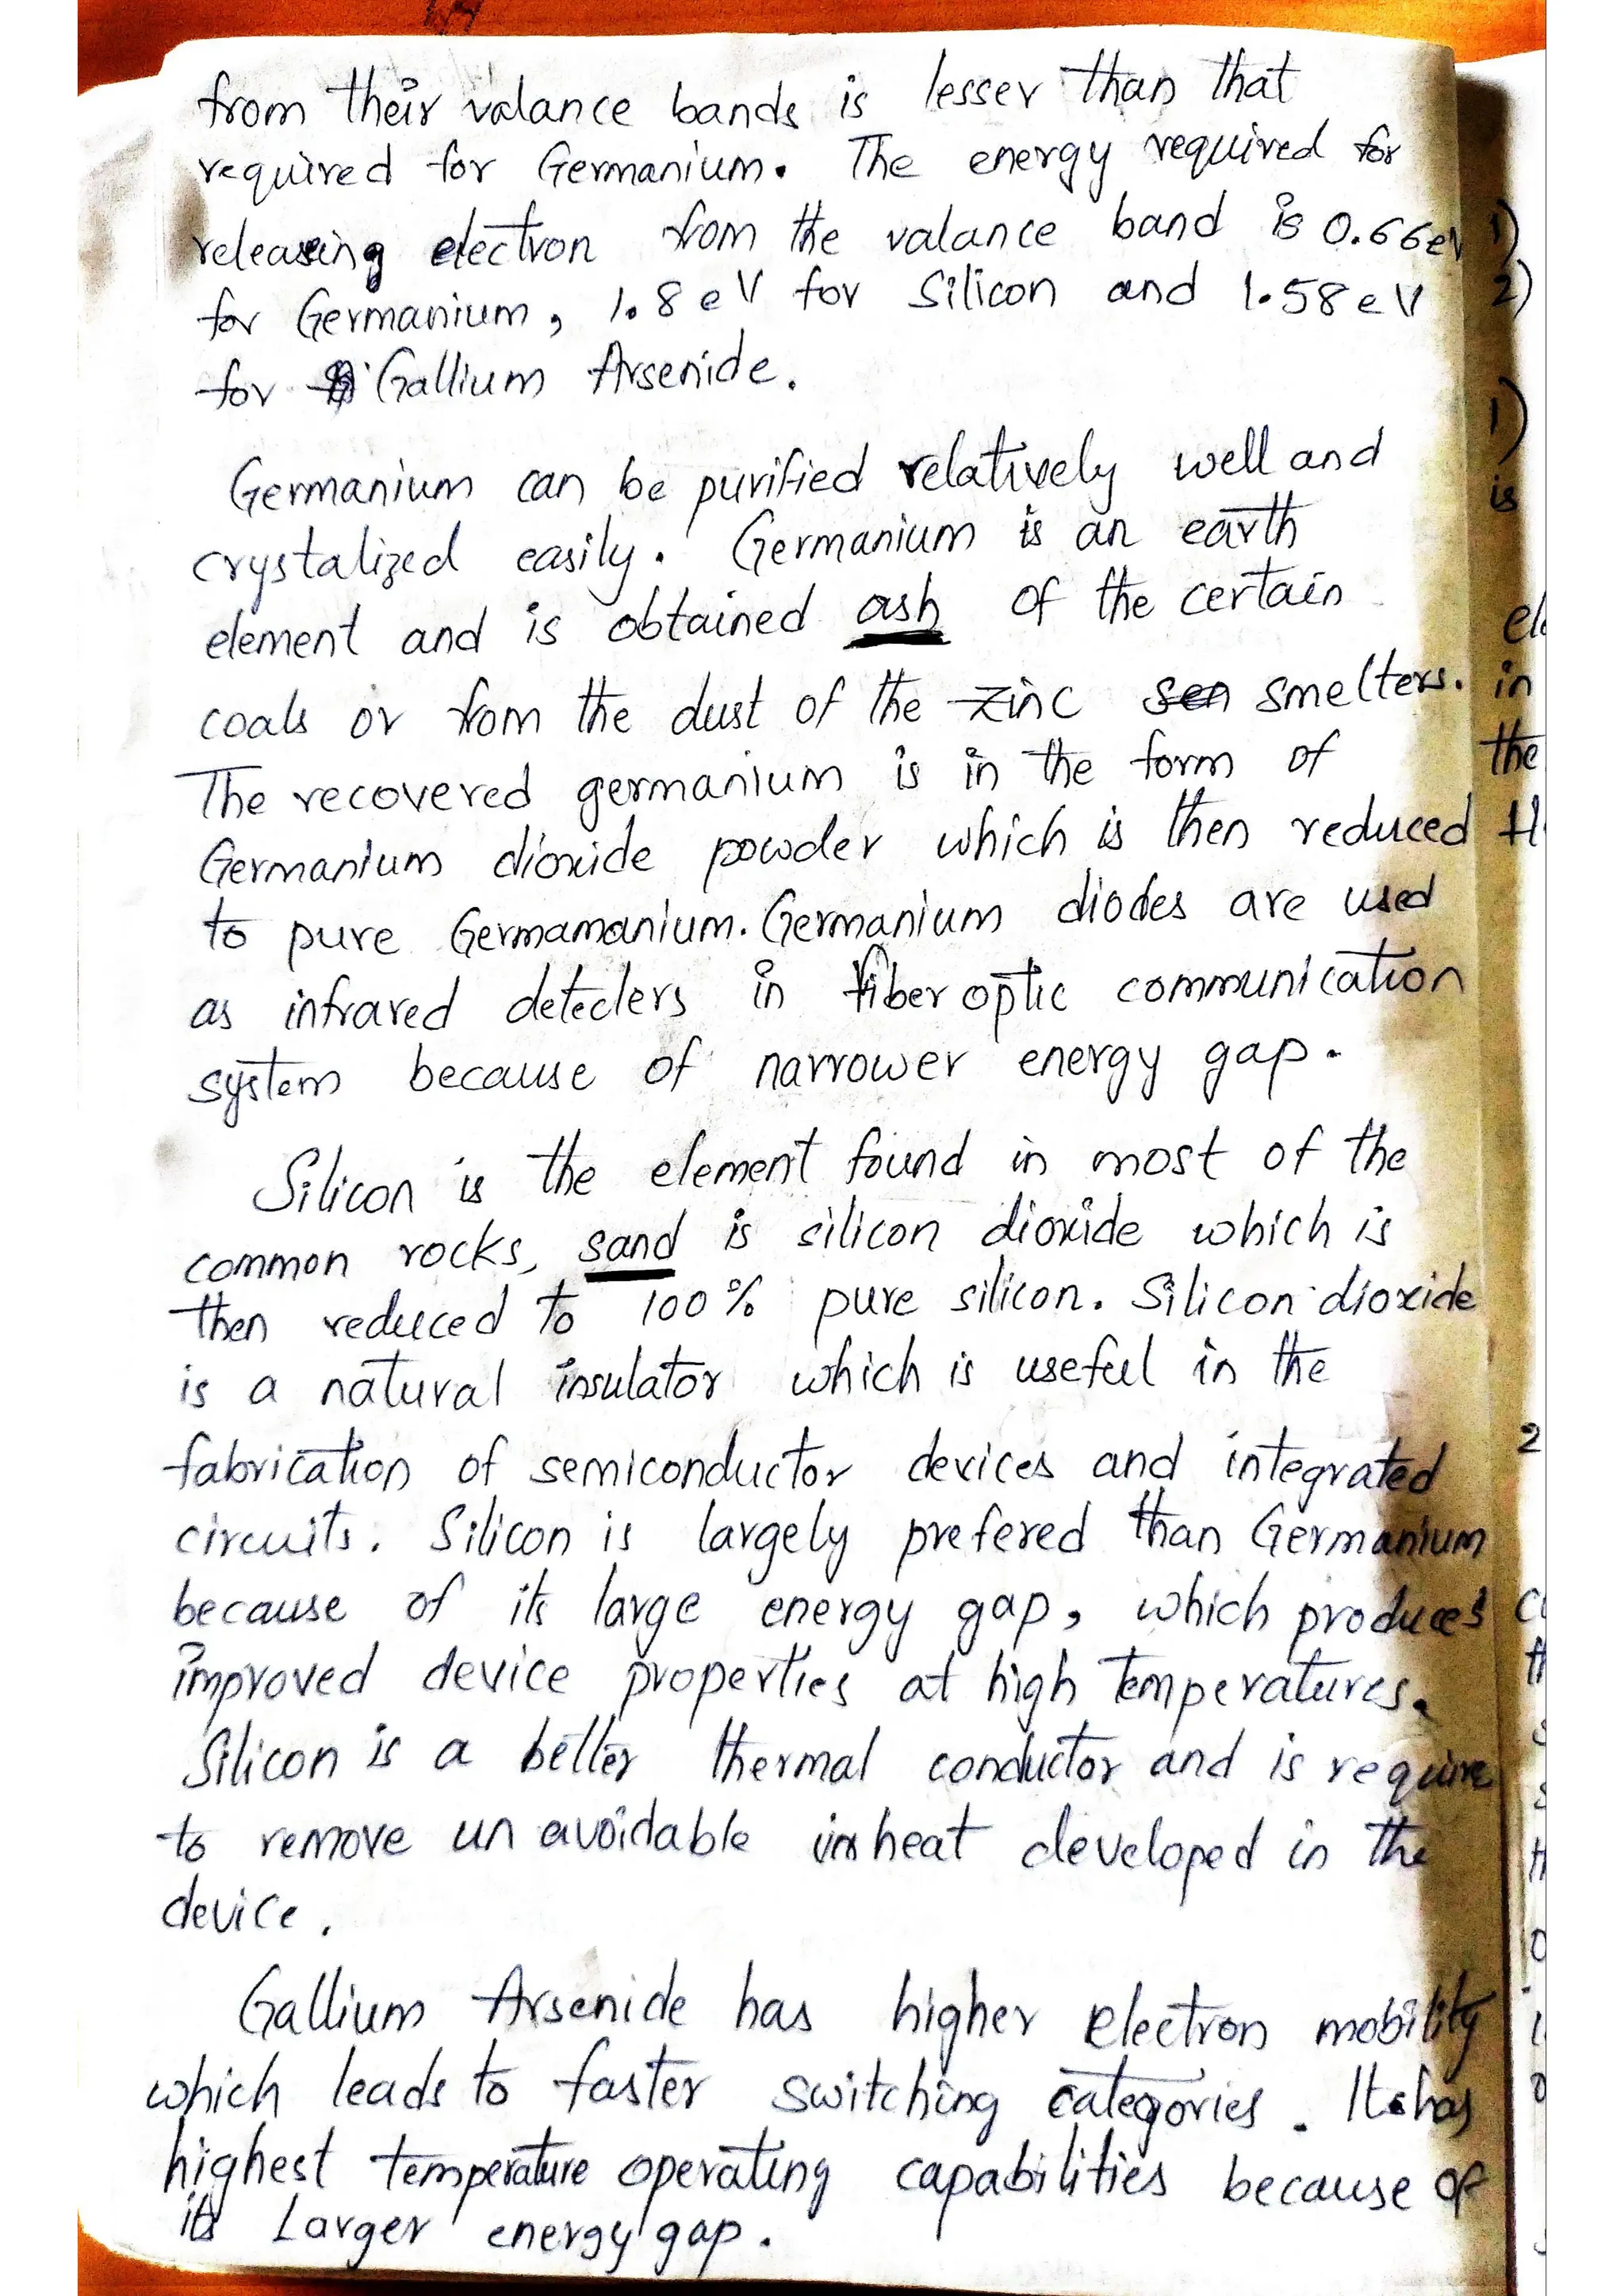 from their valance bands is lesser than that
required for Germanium. The energy required for
releasing electron from the valance band is 0.66eV
for Germanium, 1.8 eV for Silicon and 1.58 eV
for Gallium Arsenide.
Germanium can be purified relatively well and
crystalized easily. Germanium is an earth
element and is obtained ash of the certain
coals or from the dust of the zinc smelters.
The recovered germanium is in the form of
Germanium dioxide powder which is then reduced
to pure Germamanium. Germanium diodes are used
as infrared detecters in fiber optic communication
system because of narrower energy gap.
Silicon is the element found in most of the
common rocks, sand is silicon dioxide which is
then reduced to 100% pure silicon. Silicon dioxide
is a natural insulator which is useful in the
fabrication of semiconductor devices and integrated
circuits. Silicon is largely prefered than Germanium
because of its large energy gap, which produces
improved device properties at high temperatures.
Silicon is a better thermal conductor and is require
to remove un avoidable heat developed in the
device.
Gallium Arsenide has higher electron mobility
which leads to faster switching categories. It has
highest temperature operating capabilities because of
its Larger energy gap.
1)
2)
1)
is
in
the
2